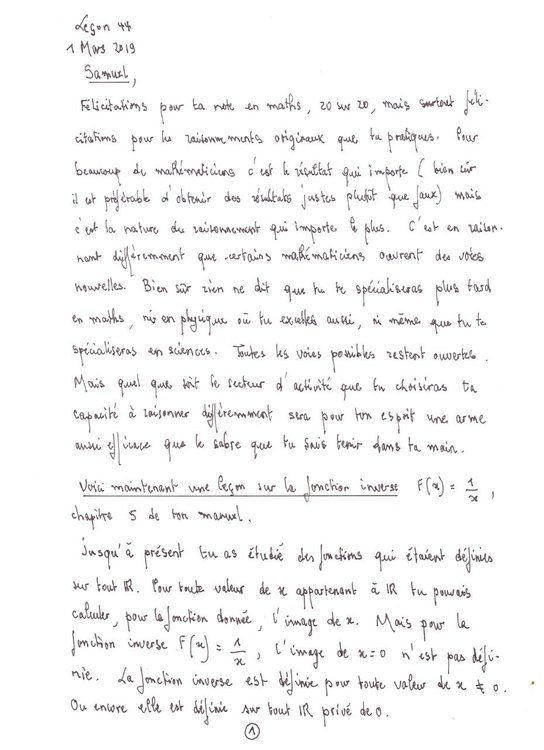 Leçon 44
1 Mars 2019
Samuel,
Félicitations pour ta note en maths, 20 sur 20, mais surtout féli-
citations pour les raisonnements originaux que tu pratiques. Pour
beaucoup de mathématiciens c'est le résultat qui importe (bien sûr
il est préférable d'obtenir des résultats justes plutôt que faux) mais
c'est la nature du raisonnement qui importe le plus. C'est en raison-
nant différemment que certains mathématiciens ouvrent des voies
nouvelles. Bien sûr rien ne dit que tu te spécialiseras plus tard
en maths, ni en physique où tu excelles aussi, ni même que tu te
spécialiseras en sciences. Toutes les voies possibles restent ouvertes.
Mais quel que soit le secteur d'activité que tu choisiras ta
capacité à raisonner différemment sera pour ton esprit une arme
aussi efficace que le sabre que tu sais tenir dans ta main.
Voici maintenant une leçon sur la fonction inverse F(x) = 1/x,
chapitre 5 de ton manuel.
Jusqu'à présent tu as étudié des fonctions qui étaient définies
sur tout IR. Pour toute valeur de x appartenant à IR tu pouvais
calculer, pour la fonction donnée, l'image de x. Mais pour la
fonction inverse F(x) = 1/x, l'image de x=0 n'est pas défi-
nie. La fonction inverse est définie pour toute valeur de x ≠ 0.
Ou encore elle est définie sur tout IR privé de 0.
1